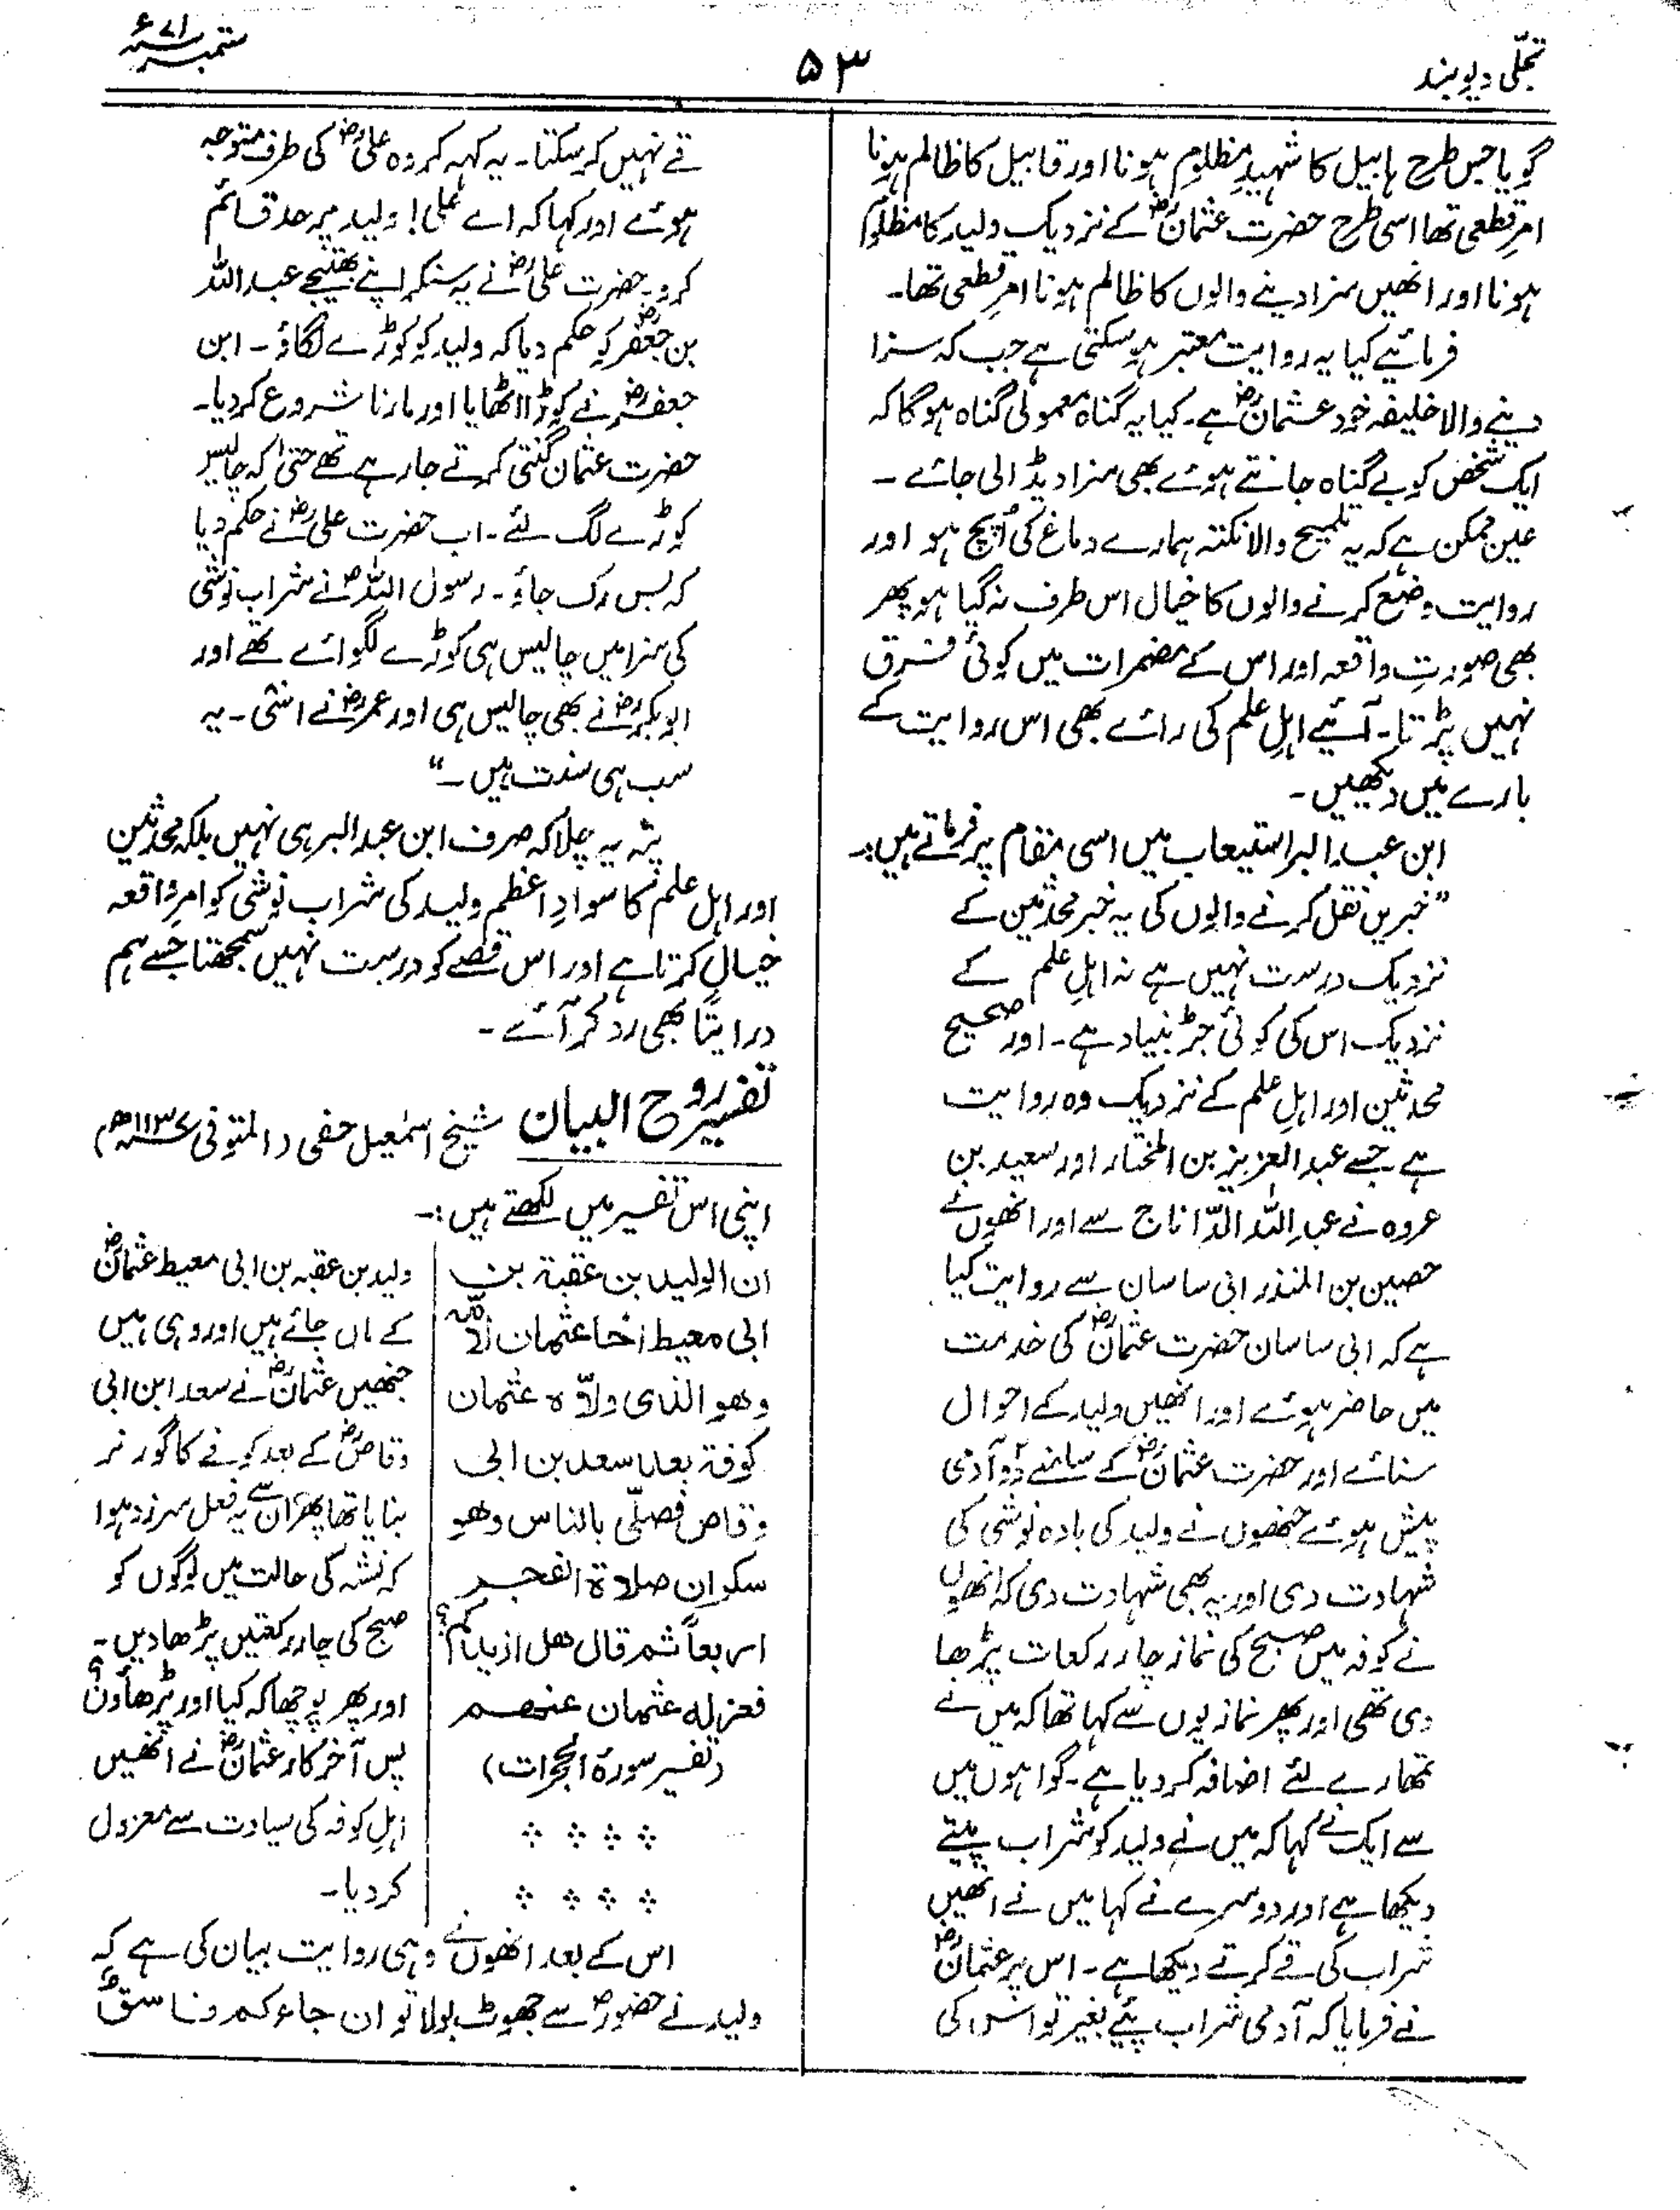 تجلّی دیوبند
۵۳
ستمبر ۷۱ء
گویا جس طرح ہابیل کا شہیدِ مظلوم ہونا اور قابیل کا ظالم ہونا
امرِ قطعی تھا اسی طرح حضرت عثمانؓ کے نزدیک ولید کا مظلوم
ہونا اور انھیں سزا دینے والوں کا ظالم ہونا امرِ قطعی تھا۔
فرمائیے کیا یہ روایت معتبر ہو سکتی ہے جب کہ سزا
دینے والا خلیفہ خود عثمانؓ ہے۔ کیا یہ گناہ معمولی گناہ ہو گا کہ
ایک شخص کو بے گناہ جانتے ہوئے بھی سزا دیڈالی جائے ۔
عین ممکن ہے کہ یہ تلمیح والا نکتہ ہمارے دماغ کی اُپج ہو اور
روایت وضع کرنے والوں کا خیال اس طرف نہ گیا ہو پھر
بھی صورتِ واقعہ اور اس کے مضمرات میں کوئی فرق
نہیں پڑتا۔ آئیے اہلِ علم کی رائے بھی اس روایت کے
بارے میں دیکھیں۔
ابن عبدالبر استیعاب میں اسی مقام پر فرماتے ہیں:۔
”خبریں نقل کرنے والوں کی یہ خبر محدثین کے
نزدیک درست نہیں ہے نہ اہلِ علم کے
نزدیک اس کی کوئی جڑ بنیاد ہے۔ اور صحیح
محدثین اور اہلِ علم کے نزدیک وہ روایت
ہے جسے عبد العزیز بن المختار اور سعید بن
عروہ نے عبداللہ الدّاناج سے اور انھوں نے
حصین بن المنذر ابی ساسان سے روایت کیا
ہے کہ ابی ساسان حضرت عثمانؓ کی خدمت
میں حاضر ہوئے اور انھیں ولید کے احوال
سنائے اور حضرت عثمانؓ کے سامنے دو آدمی
پیش ہوئے جنھوں نے ولید کی بادہ نوشی کی
شہادت دی اور یہ بھی شہادت دی کہ انھوں
نے کوفہ میں صبح کی نماز چار رکعات پڑھا
دی تھی اور پھر نمازیوں سے کہا تھا کہ میں نے
تمھارے لئے اضافہ کر دیا ہے۔ گواہوں میں
سے ایک نے کہا کہ میں نے ولید کو شراب پیتے
دیکھا ہے اور دوسرے نے کہا میں نے انھیں
شراب کی قے کرتے دیکھا ہے۔ اس پر عثمانؓ
نے فرمایا کہ آدمی شراب پئیے بغیر تو اس کی
قے نہیں کر سکتا۔ یہ کہہ کر وہ علیؓ کی طرف متوجہ
ہوئے اور کہا کہ اے علی! ولید پر حد قائم
کرو۔ حضرت علیؓ نے یہ سنکر اپنے بھتیجے عبداللہ
بن جعفرؓ کو حکم دیا کہ ولید کو کوڑے لگاؤ ۔ ابن
جعفرؓ نے کوڑا اٹھایا اور مارنا شروع کر دیا۔
حضرت عثمان گنتی کرتے جا رہے تھے حتیٰ کہ چالیس
کوڑے لگ لئے ۔ اب حضرت علیؓ نے حکم دیا
کہ بس رک جاؤ۔ رسول اللہؐ نے شراب نوشی
کی سزا میں چالیس ہی کوڑے لگوائے تھے اور
ابوبکرؓ نے بھی چالیس ہی اور عمرؓ نے اسّی ۔ یہ
سب ہی سنت ہیں ۔“
پتہ یہ چلا کہ صرف ابن عبدالبر ہی نہیں بلکہ محدثین
اور اہل علم کا سوادِ اعظم ولید کی شراب نوشی کو امرِ واقعہ
خیال کرتا ہے اور اس قصے کو درست نہیں سمجھتا جسے ہم
درایتاً بھی رد کر آئے ۔
تفسیر روح البیان شیخ اسمٰعیل حقی (المتوفی ۱۱۳۷ھ)
اپنی اس تفسیر میں لکھتے ہیں:۔
ان الولید بن عقبة بن
ابی معیط اخا عثمان لامّہ
وھو الذی ولّاہ عثمان
کوفة بعد سعد بن ابی
وقاص فصلّی بالناس وھو
سکران صلاة الفجر
اربعاً ثم قال ھل ازیدکم؟
فعزلہ عثمان عنھم
(تفسیر سورۃ الحجرات)
ولید بن عقبہ بن ابی معیط عثمانؓ
کے ماں جائے ہیں اور وہی ہیں
جنھیں عثمانؓ نے سعد ابن ابی
وقاصؓ کے بعد کوفے کا گورنر
بنایا تھا پھر ان سے یہ فعل سرزد ہوا
کہ نشہ کی حالت میں لوگوں کو
صبح کی چار رکعتیں پڑھا دیں۔
اور پھر پوچھا کہ کیا اور پڑھاؤں؟
پس آخر کار عثمانؓ نے انھیں
اہلِ کوفہ کی سیادت سے معزول
کر دیا۔
اس کے بعد انھوں نے وہی روایت بیان کی ہے کہ
ولید نے حضورؐ سے جھوٹ بولا تو ان جاءکم فاسقٌ